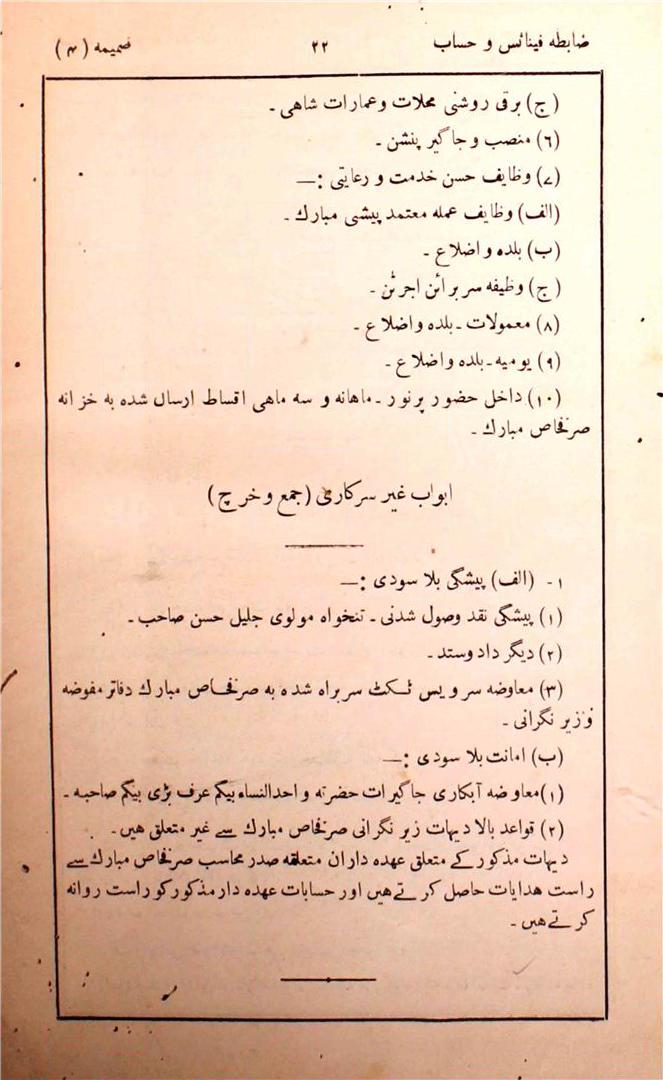 ضابطہ فینانس و حساب ۲۲ ضمیمہ (۴)
(ج) برقی روشنی محلات و عمارات شاهی ۔
(٦) منصب و جاگیر پنشن ۔
(۷) وظایف حسن خدمت و رعایتی :—
(الف) وظایف عملہ معتمد پیشی مبارك ۔
(ب) بلدہ و اضلاع ۔
(ج) وظیفہ سر برائن اجرٹن ۔
(۸) معمولات ۔ بلدہ و اضلاع ۔
(۹) یومیہ ۔ بلدہ و اضلاع ۔
(۱۰) داخل حضور پرنور ۔ ماهانہ و سہ ماهی اقساط ارسال شدہ بہ خزانہ
صرفخاص مبارك ۔
ابواب غیر سرکاری (جمع و خرچ)
۱۔ (الف) پیشگی بلا سودی :—
(۱) پیشگی نقد وصول شدنی ۔ تنخواہ مولوی جلیل حسن صاحب ۔
(۲) دیگر داد وستد ۔
(۳) معاوضہ سرویس ٹکٹ سربراہ شدہ بہ صرفخاص مبارك دفاتر مفوضہ
وزیر نگرانی ۔
(ب) امانت بلا سودی :—
(۱) معاوضہ آبکاری جاگیرات حضرتہ واحدالنساء بیگم عرف بڑی بیگم صاحبہ ۔
(۲) قواعد بالا دیہات زیر نگرانی صرفخاص مبارك سے غیر متعلق هیں ۔
دیہات مذکور کے متعلق عهدہ داران متعلقہ صدر محاسب صرفخاص مبارك سے
راست هدایات حاصل کرتے هیں اور حسابات عهدہ دار مذکور کو راست روانہ
کرتے هیں ۔